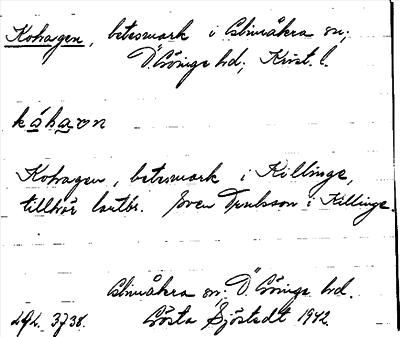 Kohagen, betesmark i Glimåkra sn;
Ö. Göinge hd; Krist. l.
kóhagon
Kohagen, betesmark i Killinge,
tillhör lantbr. Sven Trulsson i Killinge.
Glimåkra sn; Ö. Göinge hd.
Gösta Sjöstedt 1942.